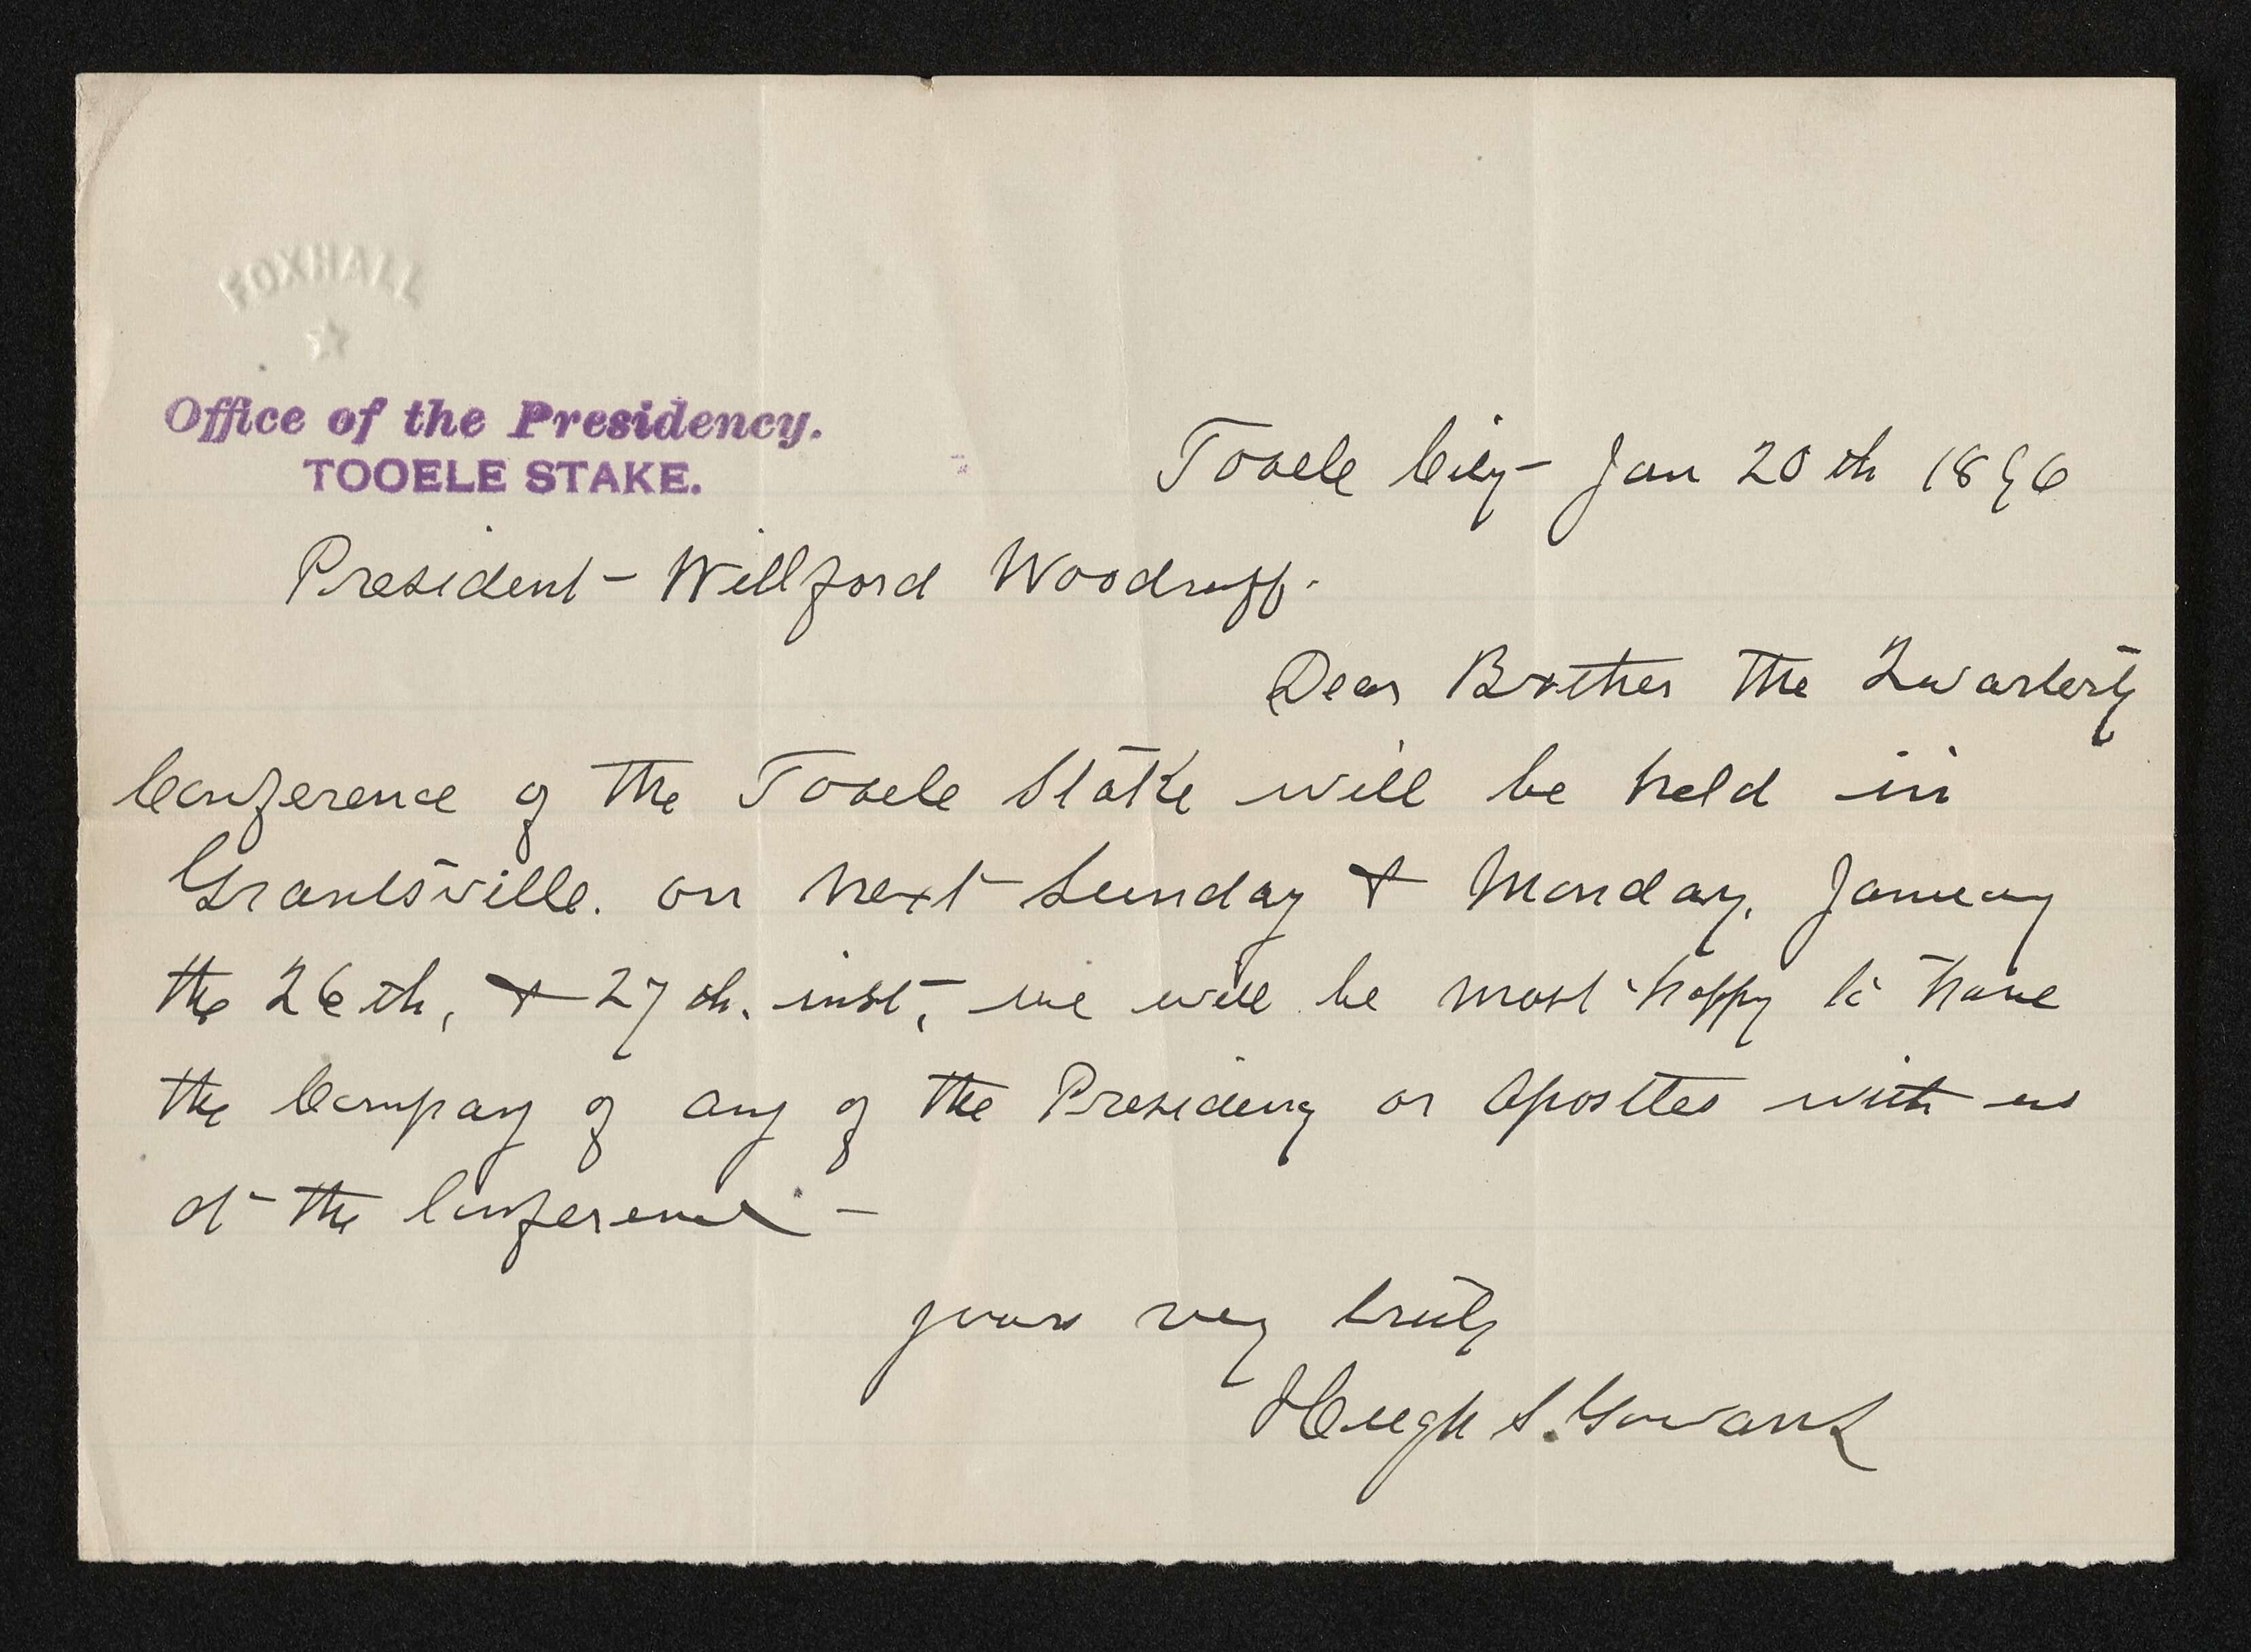 FOXHALL
Office of the Presidency.
TOOELE STAKE.
Tooele City Jan 20th 1896
President Willford Woodruff.
Dear Brother The Quarterly
Conference of the Tooele Stake will be held in
Grantsville. on next Sunday & Monday, January
the 26th, & 27th. inst, we will be most happy to have
the Company of any of the Presidency or Apostles with us
at the Conference -
yours very truly
Hugh S. Gowans